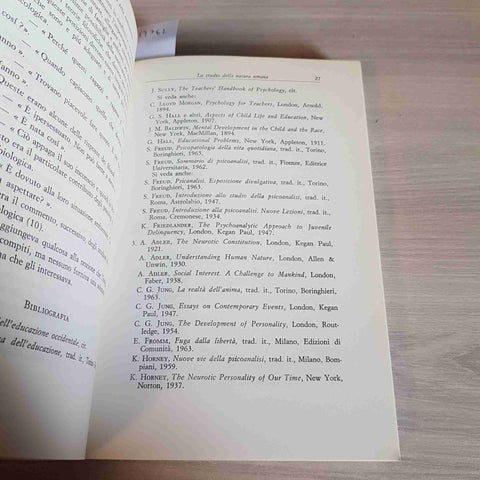 cologica
così ? » —
« Perché
« Quando capiscono quello
anno » —
« Trovano piacevole fare
« È ipersensitiva. Non può farne
Queste erano alcune delle risposte
« È nata così »
« Ciò appaga il suo inconscio
era il particolare contributo
biologica.
« È dovuto alla loro situazione
aspettare? »
era il commento successivo degli studenti
ologica (10).
ggiungeva qualcosa alla
compiti, ma nessuno forniva una
che gli interessava.
BIBLIOGRAFIA
dell'educazione occidentale, cit.
dell'educazione, trad. it., Torino
Lo studio della natura umana 27
J. SULLY, The Teachers' Handbook of Psychology, cit.
Si veda anche:
C. LLOYD MORGAN, Psychology for Teachers, London, Arnold,
1894.
G. S. HALL e altri, Aspects of Child Life and Education, New
York, Appleton, 1907.
J. M. BALDWIN, Mental Development in the Child and the Race,
New York, MacMillan, 1894.
G. HALL, Educational Problems, New York, Appleton, 1911.
S. FREUD, Psicopatologia della vita quotidiana, trad. it., Torino,
Boringhieri, 1965.
S. FREUD, Sommario di psicoanalisi, trad. it., Firenze, Editrice
Universitaria, 1962.
Si veda anche:
S. FREUD, Psicanalisi. Esposizione divulgativa, trad. it., Torino,
Boringhieri, 1963.
S. FREUD, Introduzione allo studio della psicoanalisi, trad. it.,
Roma, Astrolabio, 1947.
S. FREUD, Introduzione alla psicoanalisi. Nuove Lezioni, trad. it.,
Roma, Cremonese, 1934.
K. FRIEDLANDER, The Psychoanalytic Approach to Juvenile
Delinquency, London, Kegan Paul, 1947.
5. A. ADLER, The Neurotic Constitution, London, Kegan Paul,
1921.
A. ADLER, Understanding Human Nature, London, Allen &
Unwin, 1930.
A. ADLER, Social Interest. A Challenge to Mankind, London,
Faber, 1938.
C. G. JUNG, La realtà dell'anima, trad. it., Torino, Boringhieri,
1963.
C. G. JUNG, Essays on Contemporary Events, London, Kegan
Paul, 1947.
C. G. JUNG, The Development of Personality, London, Rout-
ledge, 1954.
E. FROMM, Fuga dalla libertà, trad. it., Milano, Edizioni di
Comunità, 1963.
K. HORNEY, Nuove vie della psicoanalisi, trad. it., Milano, Bom-
piani, 1959.
K. HORNEY, The Neurotic Personality of Our Time, New York,
Norton, 1937.